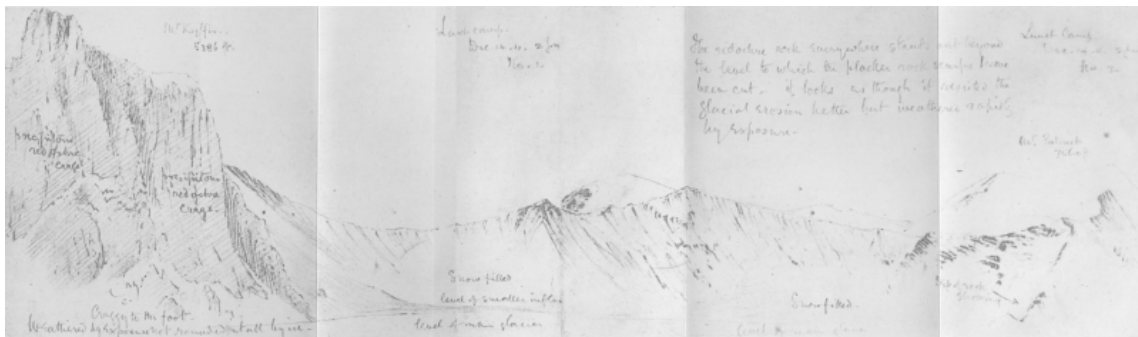 Mt Kyffin.
5386 ft.
precipitous
red ochre
Crags
precipitous
red ochre
Crags.
Craggy to the foot.
Weathered by exposure not rounded at all by ice.
Lunch Camp.
Dec 12. 11. 2 pm
No. 1
Snow filled
level of smaller inflow
level of main glacier
The red ochre rock everywhere stands out beyond
the level to which the blacker rock scarps have
been cut. it looks as though it resisted the
glacial erosion better but weathers rapidly
by exposure.
Snow filled.
level main glacier
Lunch Camp
Dec. 12. 11. 2 pm
No 2
Mt Patrick